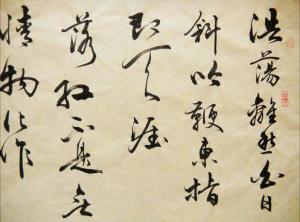 浩蕩離愁白日
斜吟鞭東指
即天涯
落紅不是無
情物化作